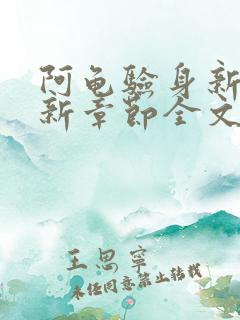 阿龟验身新
新章节全文
王思宁
未经同意禁止转载